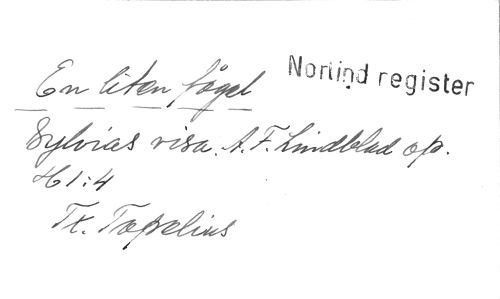 En liten fågel
Norlind register
Sylvias visa. A.F. Lindblad op.
H 1:4
Tx. Topelius